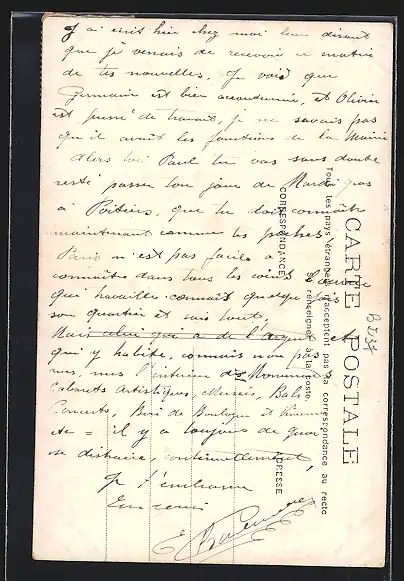 J'ai écrit hier chez moi leur disant
que je venais de recevoir ce matin
de tes nouvelles. Je vois que
Germain est bien accoutumé, et Olivier
est pressé de travail, je ne savais pas
qu'il avait les fonctions de la Mairie
Alors toi Paul tu vas sans doute
resté passer ton jour de Mardi gras
à Poitiers, que tu dois connaître
maintenant comme tes poches
Paris n'est pas facile à
connaître dans tous les coins
qui travaille connait quelque fois
son quartier et sais tout,
Mais celui qui a de l'argent et
qui y habite, connais non pas
l'intérieur des Monuments
Cabarets Artistiques, Musées, Bals
Concerts, Bois de Boulogne et Vincennes
etc = il y a toujours de quoi
se distraire, continuellement,
Je t'embrasse
CARTE POSTALE
Tous les pays étrangers n'acceptent pas la correspondance au recto
se renseigner à la poste.
CORRESPONDANCE
ADRESSE